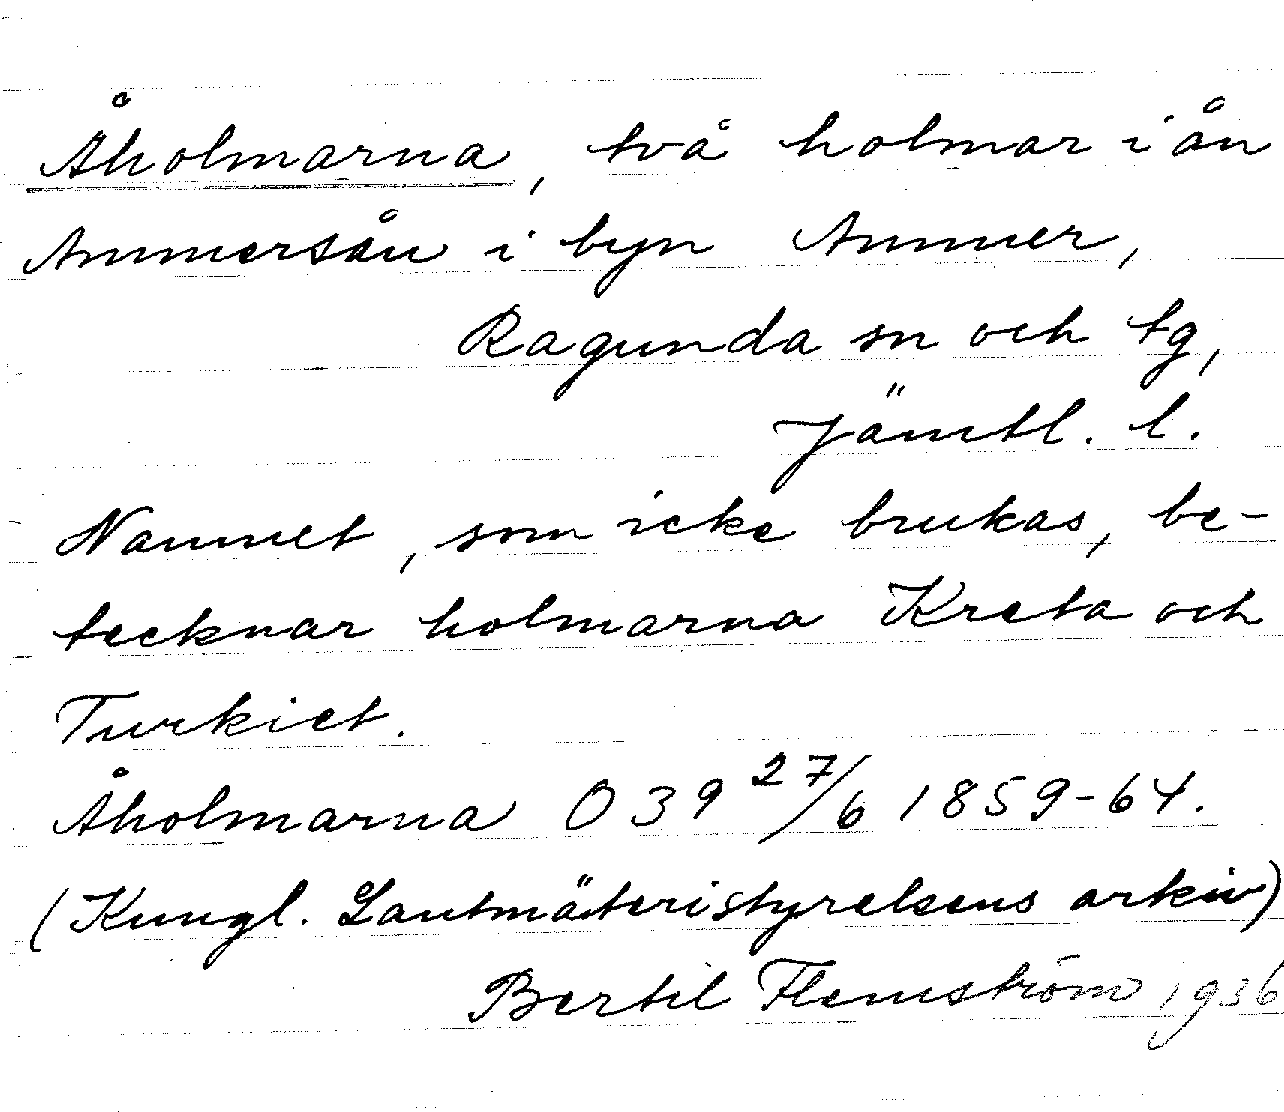 Åholmarna, två holmar i ån
Ammersån i byn Ammer,
Ragunda sn och tg,
Jämtl. l.
Namnet, som icke brukas, be-
tecknar holmarna Kreta och
Turkiet.
Åholmarna O 39 27/6 1859-64.
(Kungl. Lantmäteristyrelsens arkiv)
Bertil Flemström 1936